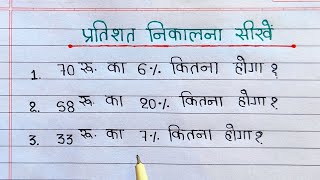 प्रतिशत निकालना सीखें
1. 70 रू. का 6% कितना होगा?
2. 58 रू. का 20% कितना होगा?
3. 33 रू. का 7% कितना होगा?